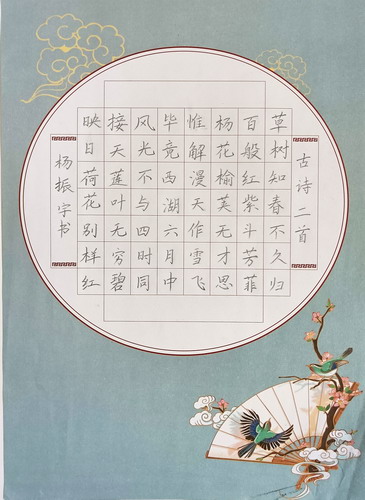 古诗二首
草树知春不久归
百般红紫斗芳菲
杨花榆荚无才思
惟解漫天作雪飞
毕竟西湖六月中
风光不与四时同
接天莲叶无穷碧
映日荷花别样红
杨振宇书